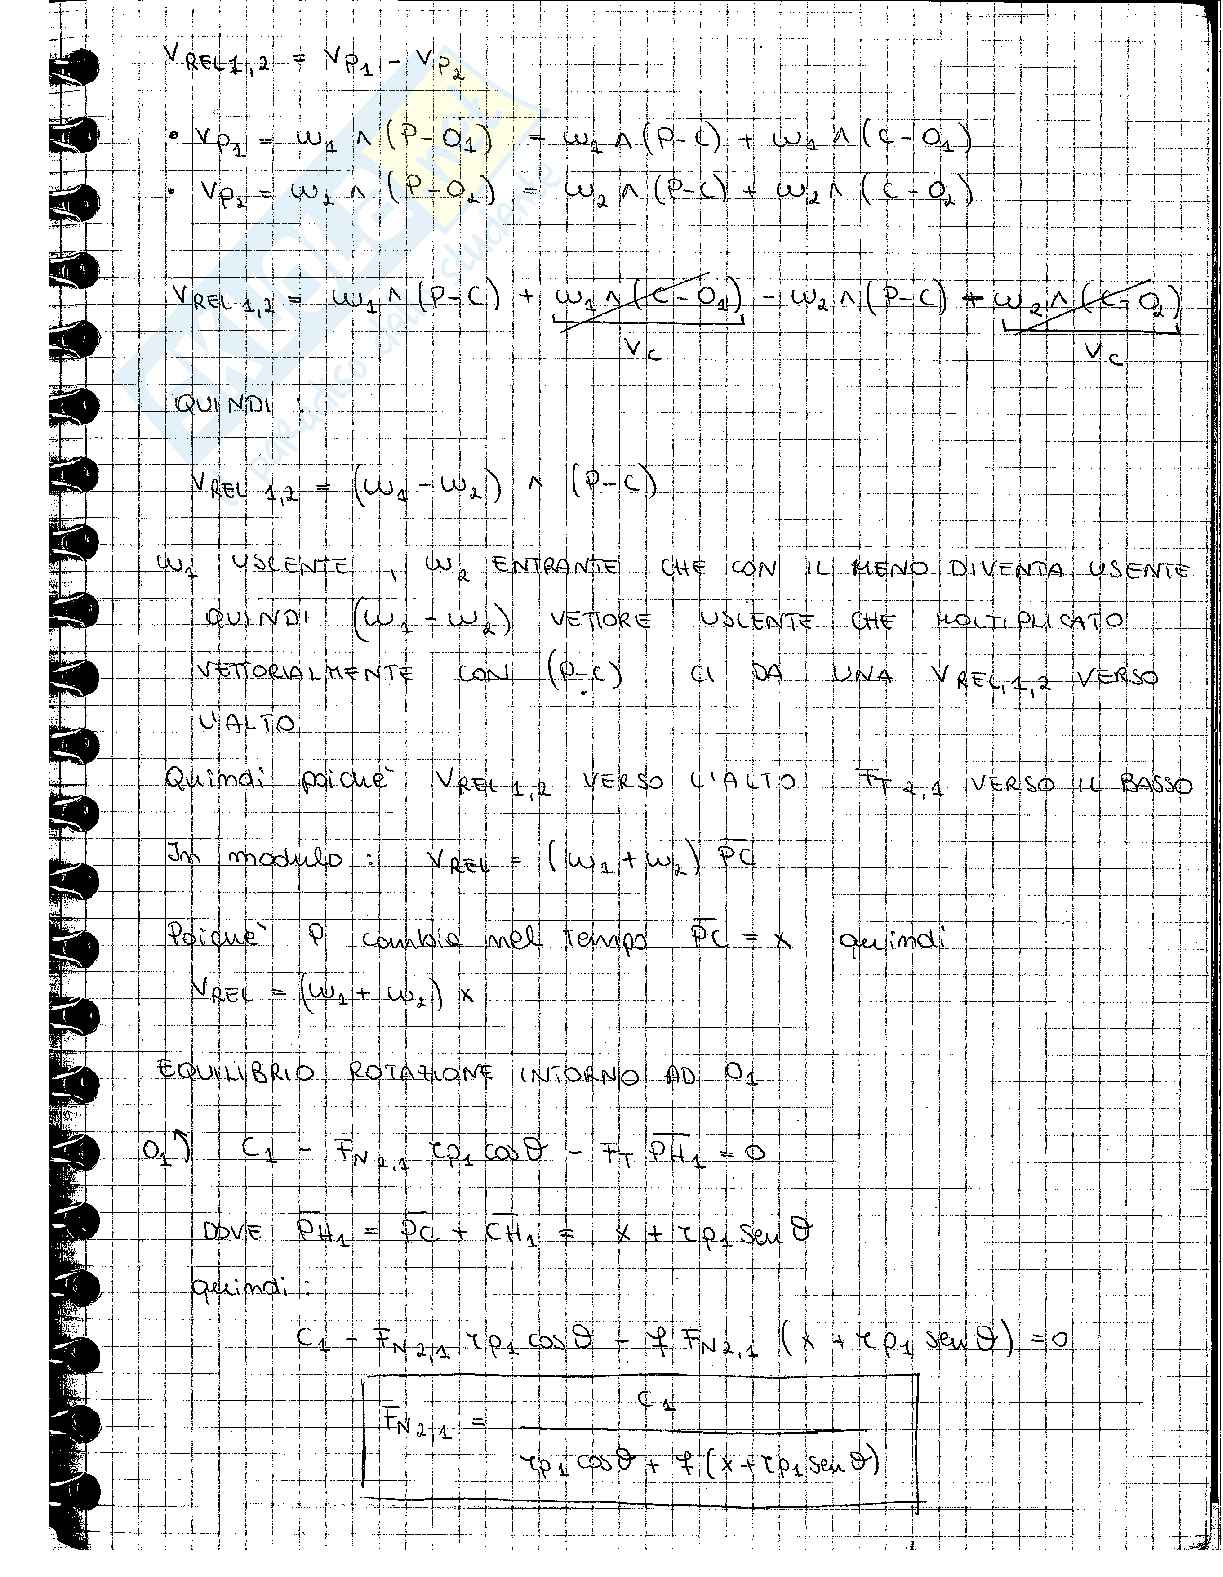 V_REL1,2 = V_P1 - V_P2
• V_P1 = ω1 ∧ (P-O1) = ω1 ∧ (P-C) + ω1 ∧ (C-O1)
• V_P2 = ω2 ∧ (P-O2) = ω2 ∧ (P-C) + ω2 ∧ (C-O2)
V_REL 1,2 = ω1 ∧ (P-C) + ω1 ∧ (C-O1) - ω2 ∧ (P-C) + ω2 ∧ (C-O2)
V_C V_C
QUINDI :
V_REL 1,2 = (ω1 - ω2) ∧ (P-C)
ω1 USCENTE , ω2 ENTRANTE CHE CON IL MENO DIVENTA USENTE
QUINDI (ω1 - ω2) VETTORE USCENTE CHE MOLTIPLICATO
VETTORIALMENTE CON (P-C) CI DA UNA V_REL,1,2 VERSO
L'ALTO
Quindi poichè V_REL1,2 VERSO L'ALTO F_T2,1 VERSO IL BASSO
In modulo : V_REL = (ω1 + ω2) P̅C̅
Poichè P cambia nel tempo P̅C̅ = x quindi
V_REL = (ω1 + ω2) x
EQUILIBRIO ROTAZIONE INTORNO AD O1
O1 C1 - F_N2,1 rp1 cosϑ - F_T P̅H̅1 = 0
DOVE P̅H̅1 = P̅C̅ + C̅H̅1 = x + rp1 senϑ
quindi :
C1 - F_N2,1 rp1 cosϑ - f F_N2,1 (x + rp1 senϑ) = 0
F_N2,1 = C1 / rp1 cosϑ + f (x + rp1 senϑ)